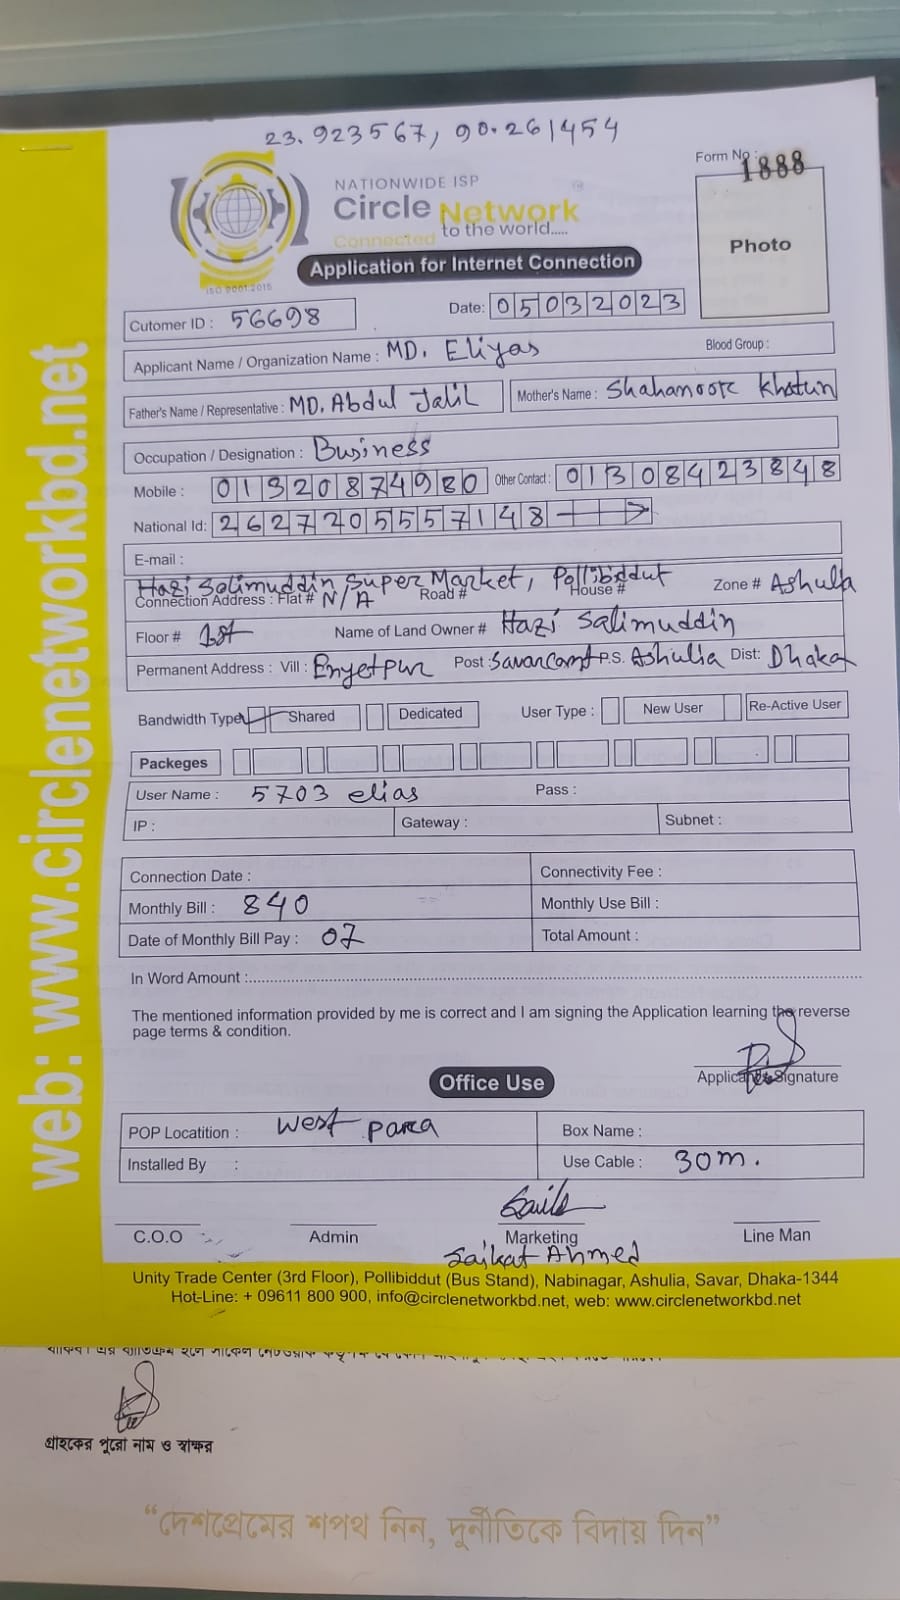 23.923567, 90.261454
Form No : 1888
NATIONWIDE ISP
Circle Network
Connected to the world.....
ISO 9001:2015
Photo
Application for Internet Connection
Cutomer ID : 56698
Date: 05032023
Applicant Name / Organization Name : MD. Eliyas Blood Group :
Father's Name / Representative : MD. Abdul Jalil Mother's Name : Shahanoor Khatun
Occupation / Designation : Business
Mobile : 01320874980 Other Contact : 01308423848
National Id: 2627205557148
E-mail :
Hazi Salimuddin Super Market, Pollibiddut
Connection Address : Flat # N/A Road # House # Zone # Ashulia
Floor # 1st Name of Land Owner # Hazi Salimuddin
Permanent Address : Vill : Enyetpur Post : Savar Cant P.S. Ashulia Dist: Dhaka
Bandwidth Type Shared Dedicated User Type : New User Re-Active User
Packeges
User Name : 5703 elias Pass :
IP : Gateway : Subnet :
Connection Date : Connectivity Fee :
Monthly Bill : 840 Monthly Use Bill :
Date of Monthly Bill Pay : 07 Total Amount :
In Word Amount :
The mentioned information provided by me is correct and I am signing the Application learning the reverse
page terms & condition.
Applicant's Signature
Office Use
POP Locatition : West para Box Name :
Installed By : Use Cable : 30m.
C.O.O Admin Marketing Line Man
Saikat Ahmed
Unity Trade Center (3rd Floor), Pollibiddut (Bus Stand), Nabinagar, Ashulia, Savar, Dhaka-1344
Hot-Line: + 09611 800 900, info@circlenetworkbd.net, web: www.circlenetworkbd.net
web: www.circlenetworkbd.net
গ্রাহকের পুরো নাম ও স্বাক্ষর
“দেশপ্রেমের শপথ নিন, দুর্নীতিকে বিদায় দিন”